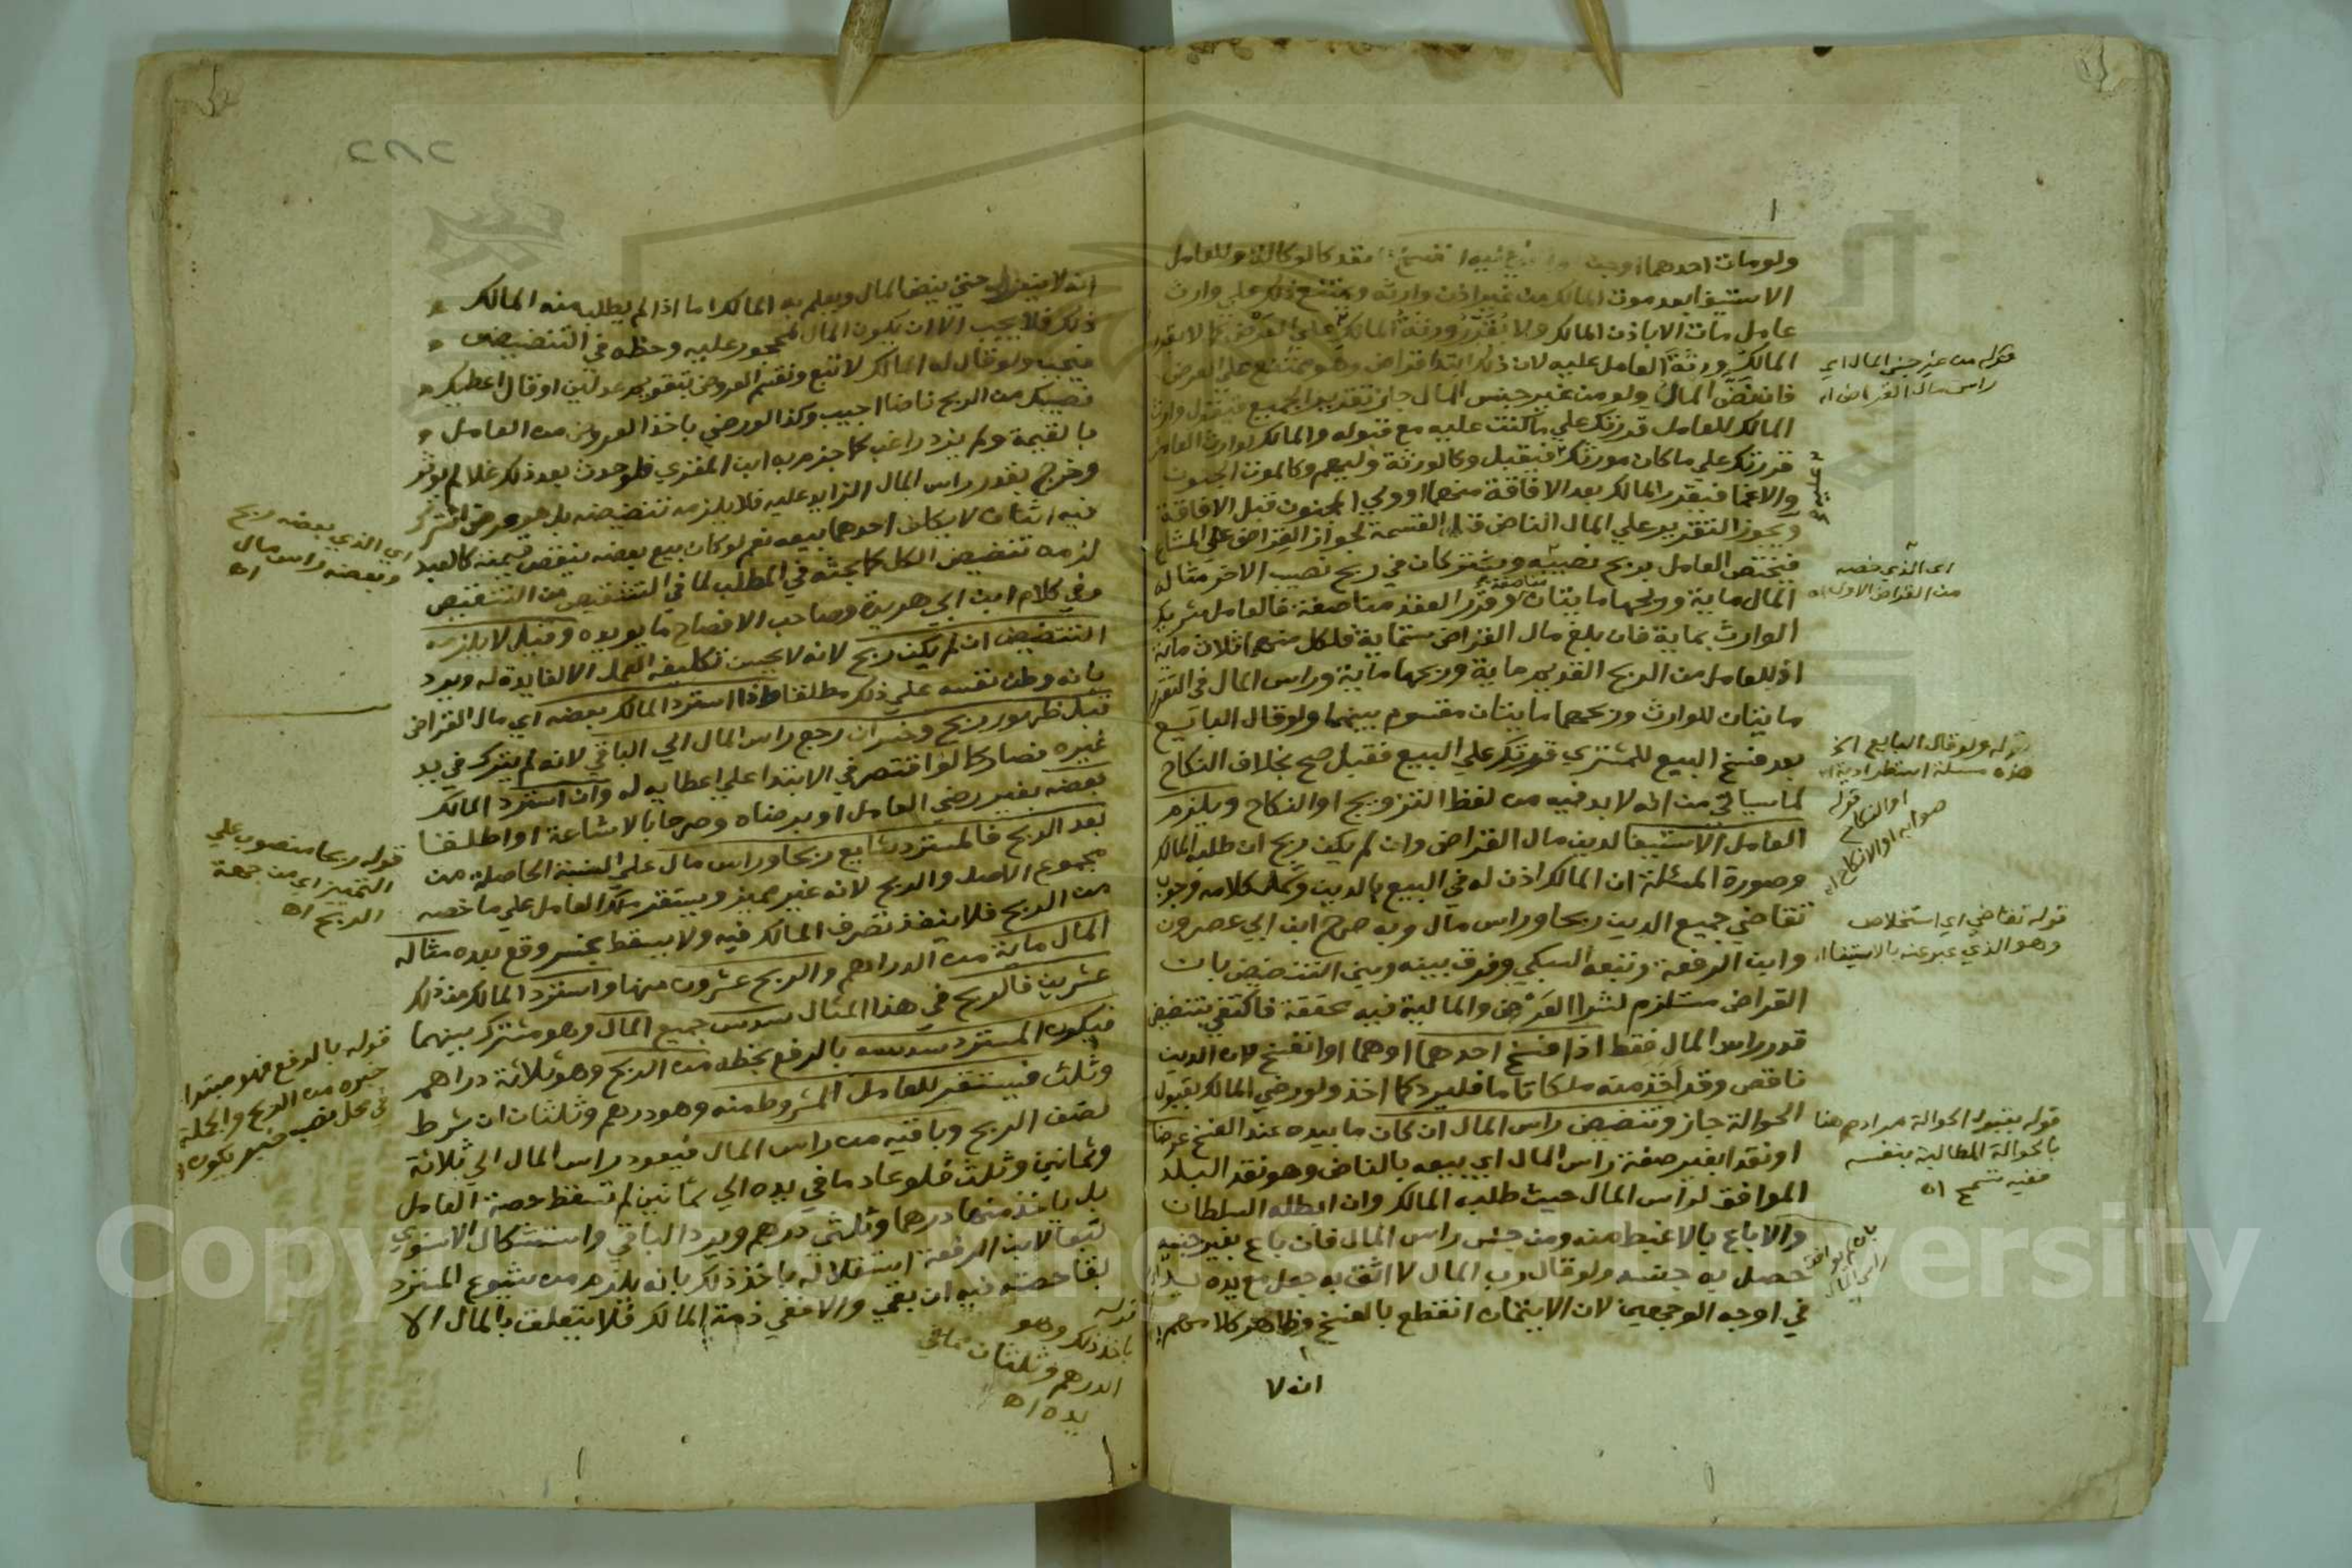 ولو مات احدهما او جن او اغمي عليه انفسخ العقد كالوكالة وللعامل
الاستيفا بعد موت المالك من غير اذن وارثه ويمتنع ذلك علي وارث
عامل مات الا باذن المالك ولا يُقَرِّرُ ورثةُ المالك علي العَرْض كما لا يقرر
المالكُ ورثةَ العامل عليه لان ذلك ابتدا قراض وهو ممتنع علي العرض
فان نضّ المالُ ولو من غير جنس المال جاز تقدير الجميع فيقول وارث
المالك للعامل قررتك علي ما كنت عليه مع قبوله والمالك لوارث العامل
قررتك علي ما كان مورثك فيقبل وكالورثة وليهم وكالموت الجنون
والاغما فيقرر المالك بعد الافاقة منهما او ولي المجنون قبل الافاقة
ويجوز التقرير علي المال الناض قبل القسمة لجواز القراض علي المشاع
فيختص العامل بربح نصيبه ويشتركان في ربح نصيب الاخر مثاله
المال ماية وربحها مايتان وقرر العقد مناصفة فالعامل شريك
الوارث بماية فان بلغ مال القراض ستماية فلكل منهما ثلاث ماية
اذ للعامل من الربح القديم ماية وربحها ماية وراس المال في التقرير
مايتان للوارث وربحهما مايتان مقسوم بينهما ولو قال البايع
بعد فسخ البيع للمشتري قررتك علي البيع فقبل صح بخلاف النكاح
لما سياتي من انه لا بد فيه من لفظ التزويج او النكاح ويلزم
العامل الاستيفا لدين مال القراض وان لم يكن ربح ان طلبه المالك
وصورة المسئلة ان المالك اذن له في البيع بالدين وشمل كلامه وجوب
تقاضي جميع الدين ربحا وراس مال وبه صرح ابن ابي عصرون
وابن الرفعة وتبعه السبكي وفرق بينه وبين التنضيض بان
القراض مستلزم لشرا العَرْض والمالية فيه محققة فاكتفي بتنضيض
قدر راس المال فقط اذا فسخ احدهما او هما او انفسخ لان الدين
ناقص وقد اخذ منه ملكا تاما فليرد كما اخذ ولو رضي المالك بقبول
الحوالة جاز وتنضيض راس المال ان كان ما بيده عند الفسخ عرضا
او نقدا بغير صفة راس المال اي بيعه بالناض وهو نقد البلد
الموافق لراس المال حيث طلبه المالك وان ابطله السلطان
والا باع بالاغبط منه ومن جنس راس المال فان باع بغير جنسه
حصل به جنسه ولو قال رب المال لا اثق به جعل مع يده يد
في اوجه الوجهين لان الايتمان انقطع بالفسخ وظاهر كلامهم
انه لا
قوله من غير جنس المال اي
راس مال القراض اه
عليه
مناصفة
اي الذي خصه
من القراض الاول اه
قوله ولو قال البايع الخ
هذه مسئلة استطرادية اه
قوله او النكاح
صوابه او الانكاح اه
قوله تقاضي اي استخلاص
وهو الذي عبر عنه بالاستيفا اه
قوله بقبول الحوالة مرادهم هنا
بالحوالة المطالبة بنفسه
ففيه تسمح اه
بان لم يوافق
راس المال
٢٨٢
انه لا ينعزل حتي ينض المال ويعلم به المالك اما اذا لم يطلب منه المالك
ذلك فلا يجب الا ان يكون المال لمحجور عليه وحظه في التنضيض
فيجب ولو قال له المالك لا تبع ونقسم العروض بتقويم عدلين او قال اعطيك
نصيبك من الربح ناضا اجيب وكذا لو رضي باخذ العروض من العامل
بالقيمة ولم يزد راغب كما جزم به ابن المقري فلو حدث بعد ذلك غلا لم يوثر
وخرج بقدر راس المال الزايد عليه فلا يلزمه تنضيضه بل هو عرض اشترك
فيه اثنان لا يكلف احدهما بيعه نعم لو كان بيع بعضه ينقص قيمته كالعبد
لزمه تنضيض الكل كما بحثه في المطلب لما في التشقيص من التنقيص
وفي كلام ابن ابي هريرة وصاحب الافصاح ما يويده وقيل لا يلزمه
التنضيض ان لم يكن ربح لانه لا يحسن تكليفه العمل الا لفايدة له ويرد
بانه وطن نفسه علي ذلك مطلقا واذا استرد المالك بعضه اي مال القراض
قبل ظهور ربح وخسران رجع راس المال الي الباقي لانه لم يترك في يد
غيره فصار كما لو اقتصر في الابتدا علي اعطايه له وان استرد المالك
بعضه بغير رضي العامل او برضاه وصرحا بالاشاعة او اطلقا
بعد الربح فالمسترد شايع ربحا وراس مال علي النسبة الحاصلة من
مجموع الاصل والربح لانه غير مميز ويستقر ملك العامل علي ما خصه
من الربح فلا ينفذ تصرف المالك فيه ولا يسقط بخسر وقع بعده مثاله
المال ماية من الدراهم والربح عشرون منها واسترد المالك من ذلك
عشرين فالربح في هذا المثال سدس جميع المال وهو مشترك بينهما
فيكون المسترد سدسه بالرفع بخطه من الربح وهو ثلاثة دراهم
وثلث فيستقر للعامل المشروط منه وهو درهم وثلثان ان شرط
نصف الربح وباقيه من راس المال فيعود راس المال الي ثلاثة
وثمانين وثلث فلو عاد ما في يده الي ثمانين لم تسقط حصة العامل
بل ياخذ منها درهما وثلثي درهم ويرد الباقي واستشكال الاسنوي
تبعا لابن الرفعة استقلاله باخذ ذلك بانه يلزم من شيوع المسترد
بقا حصته فيه ان بقي والا ففي ذمة المالك فلا يتعلق بالمال الا
اي الذي بعضه ربح
وبعضه راس مال
اه
قوله ربحا منصوب علي
التمييز اي من جهة
الربح اه
قوله بالرفع فهو مبتدا
خبره من الربح والجملة
في محل نصب خبر يكون اه
قوله
باخذ ذلك وهو
الدرهم وثلثان مما في
يده اه
Copyright © King Saud University